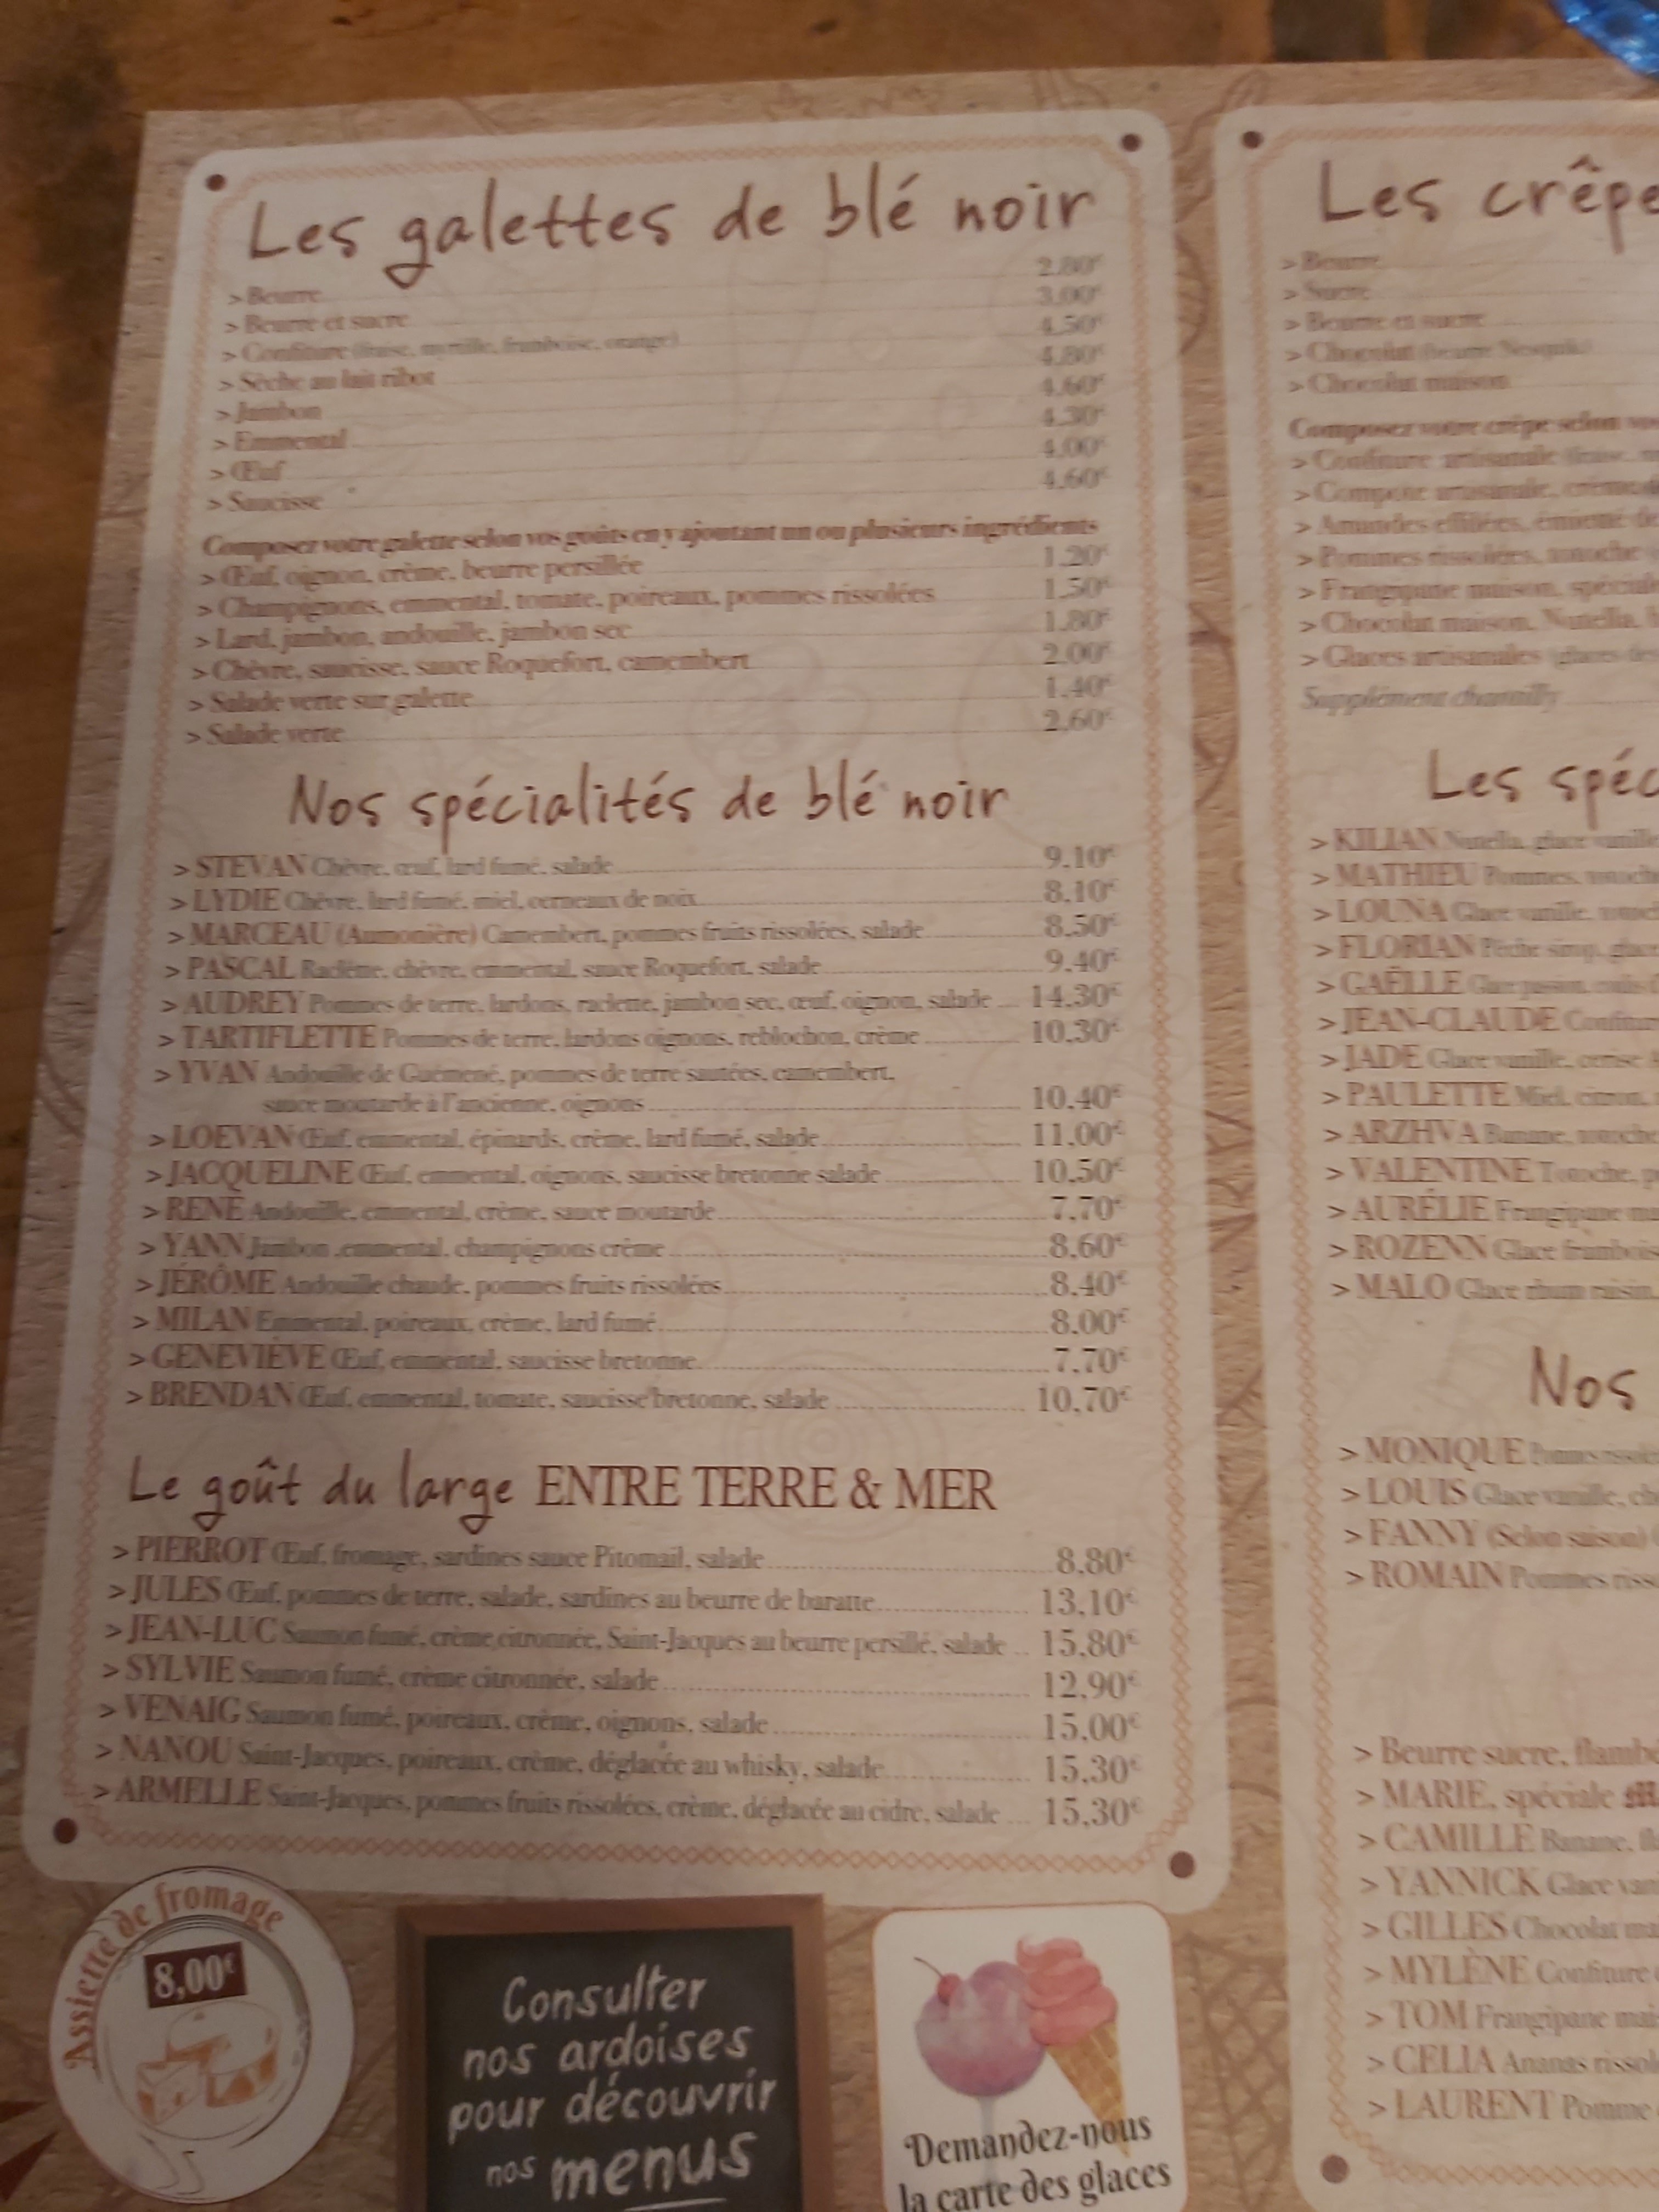 Les galettes de blé noir
> Beurre 2.80€
> Beurre et sucre 3.00€
> Confiture (fraise, myrtille, framboise, orange) 4.50€
> Sèche au lait ribot 4.80€
> Jambon 4.60€
> Emmental 4.30€
> Œuf 4.00€
> Saucisse 4.60€
Composez votre galette selon vos goûts en y ajoutant un ou plusieurs ingrédients
> Œuf, oignon, crème, beurre persillée 1.20€
> Champignons, emmental, tomate, poireaux, pommes rissolées 1.50€
> Lard, jambon, andouille, jambon sec 1.80€
> Chèvre, saucisse, sauce Roquefort, camembert 2.00€
> Salade verte sur galette 1.40€
> Salade verte 2.60€
Nos spécialités de blé noir
> STEVAN Chèvre, œuf, lard fumé, salade 9.10€
> LYDIE Chèvre, lard fumé, miel, cerneaux de noix 8.10€
> MARCEAU (Aumonière) Camembert, pommes fruits rissolées, salade 8.50€
> PASCAL Raclette, chèvre, emmental, sauce Roquefort, salade 9.40€
> AUDREY Pommes de terre, lardons, raclette, jambon sec, œuf, oignon, salade ... 14.30€
> TARTIFLETTE Pommes de terre, lardons oignons, reblochon, crème 10.30€
> YVAN Andouille de Guémené, pommes de terre sautées, camembert,
sauce moutarde à l'ancienne, oignons 10.40€
> LOEVAN Œuf, emmental, épinards, crème, lard fumé, salade 11.00€
> JACQUELINE Œuf, emmental, oignons, saucisse bretonne salade 10.50€
> RENÉ Andouille, emmental, crème, sauce moutarde 7.70€
> YANN Jambon ,emmental, champignons crème 8.60€
> JÉRÔME Andouille chaude, pommes fruits rissolées 8.40€
> MILAN Emmental, poireaux, crème, lard fumé 8.00€
> GENEVIÈVE Œuf, emmental, saucisse bretonne 7.70€
> BRENDAN Œuf, emmental, tomate, saucisse bretonne, salade 10.70€
Le goût du large ENTRE TERRE & MER
> PIERROT Œuf, fromage, sardines sauce Pitomail, salade 8.80€
> JULES Œuf, pommes de terre, salade, sardines au beurre de baratte 13.10€
> JEAN-LUC Saumon fumé, crème citronnée, Saint-Jacques au beurre persillé, salade .. 15.80€
> SYLVIE Saumon fumé, crème citronnée, salade 12.90€
> VENAIG Saumon fumé, poireaux, crème, oignons, salade 15.00€
> NANOU Saint-Jacques, poireaux, crème, déglacée au whisky, salade 15.30€
> ARMELLE Saint-Jacques, pommes fruits rissolées, crème, déglacée au cidre, salade ... 15.30€
Assiette de fromage
8,00€
Consulter
nos ardoises
pour découvrir
nos menus
Demandez-nous
la carte des glaces
Les crêpe
> Beurre
> Sucre
> Beurre et sucre
> Chocolat
> Chocolat maison
Composez votre crêpe selon
> Confiture artisanale
> Compote artisanale, crème
> Amandes effilées, émietté
> Pommes rissolées, noisette
> Frangipane maison,
> Chocolat maison, Nutella,
> Glaces artisanales
Supplément chantilly
Les spéc
> KILIAN Nutella, glace vanille
> MATHIEU Pommes,
> LOUNA Glace vanille,
> FLORIAN Pêche sirop, glace
> GAËLLE
> JEAN-CLAUDE
> JADE Glace vanille, cerise
> PAULETTE Miel, citron,
> ARZHVA Banane,
> VALENTINE
> AURÉLIE Frangipane
> ROZENN Glace
> MALO Glace rhum raisin,
Nos
> MONIQUE
> LOUIS Glace vanille,
> FANNY (Selon saison)
> ROMAIN Pommes
Beurre sucre,
> MARIE, spéciale
> CAMILLE Banane,
> YANNICK Glace
> GILLES Chocolat
> MYLÈNE Confiture
> TOM Frangipane
> CELIA Ananas
> LAURENT Pomme